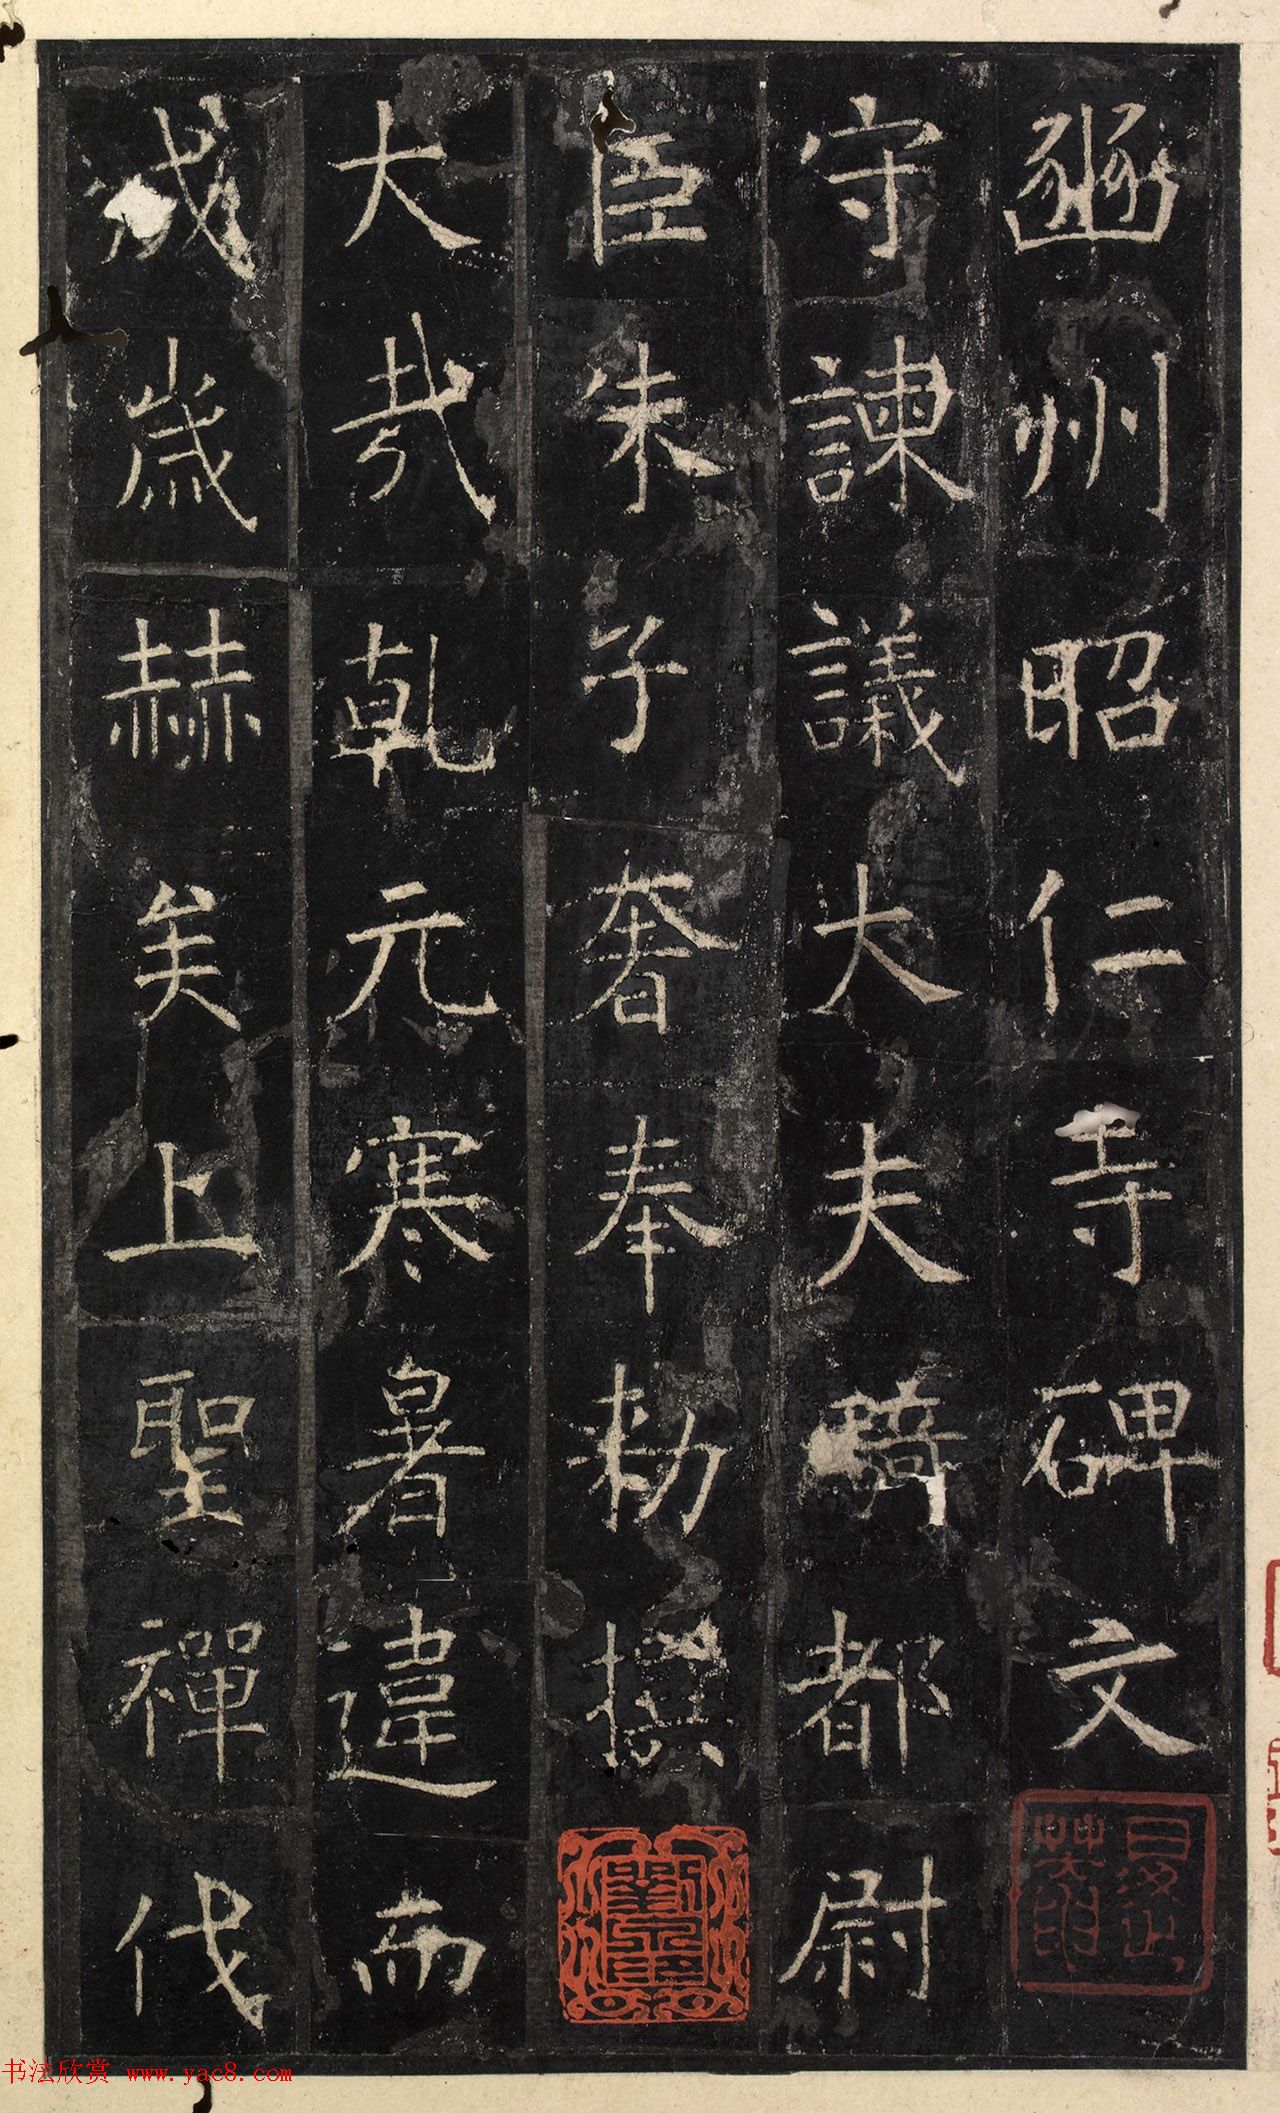 豳州昭仁寺碑文
守諫議大夫騎都尉
臣朱子奢奉勑撰
大哉乾元寒暑違而
成歲赫矣上聖禪代
书法欣赏 www.yac8.com